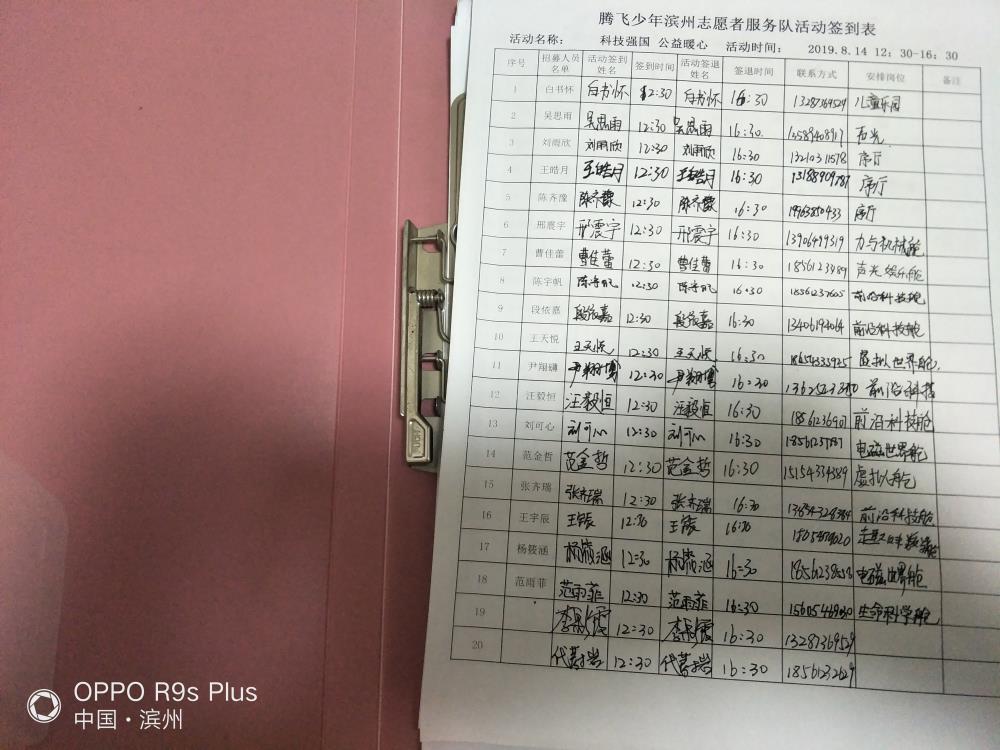 腾飞少年滨州志愿者服务队活动签到表
活动名称： 科技强国 公益暖心 活动时间： 2019.8.14 12：30-16：30
序号 招募人员名单 活动签到姓名 签到时间 活动签退姓名 签退时间 联系方式 安排岗位 备注
1 白书怀 白书怀 12:30 白书怀 16:30 13287369529 儿童乐园
2 吴思雨 吴思雨 12:30 吴思雨 16:30 声光
3 刘雨欣 刘雨欣 12:30 刘雨欣 16:30 13210311578 序厅
4 王皓月 王皓月 12:30 王皓月 16:30 15188909787 序厅
5 陈齐豫 陈齐豫 12:30 陈齐豫 16:30 序厅
6 邢震宇 邢震宇 12:30 邢震宇 16:30 13906499319 力与机械舱
7 曹佳蕾 曹佳蕾 12:30 曹佳蕾 16:30 声光娱乐舱
8 陈宇帆 陈宇帆 12:30 陈宇帆 16:30 18561237605 前沿科技舱
9 段依嘉 段依嘉 12:30 段依嘉 16:30 13406194064 前沿科技舱
10 王天悦 王天悦 12:30 王天悦 16:30 18654335925 虚拟世界舱
11 尹翔 12:30 16:30 前沿科技
12 汪毅恒 汪毅恒 12:30 汪毅恒 16:30 18561236907 前沿科技舱
13 刘可心 刘可心 12:30 刘可心 16:30 电磁世界舱
14 范金哲 范金哲 12:30 范金哲 16:30 15154334389 虚拟舱
15 张齐瑞 张齐瑞 12:30 张齐瑞 16:30 前沿科技舱
16 王宇辰 12:30 16:30
17 杨筱涵 杨筱涵 12:30 杨筱涵 16:30 电磁世界舱
18 范雨菲 范雨菲 12:30 范雨菲 16:30 15605469030 生命科学舱
19 12:30 16:30 13287369529
20 12:30 16:30 18561232629
OPPO R9s Plus
中国·滨州